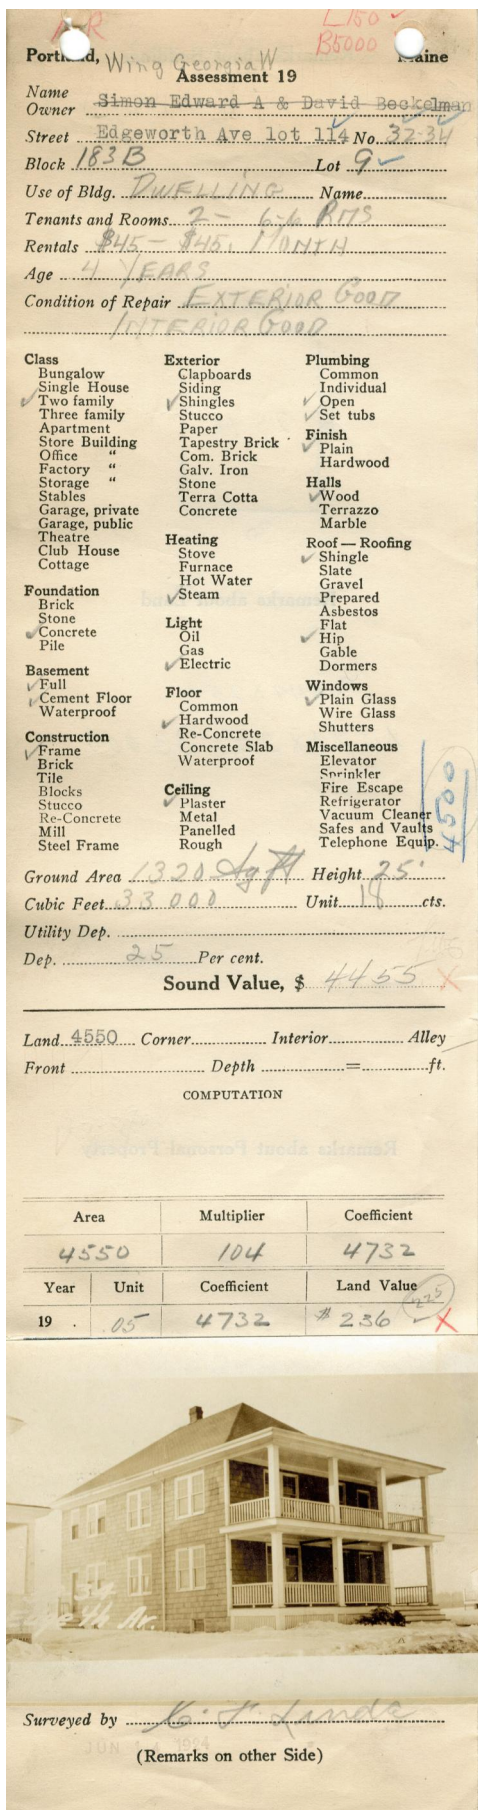 N R
L 150
B 5000
Portland, Wing Georgia W Maine
Assessment 19
Name
Owner Simon Edward A & David Beckelman
Street Edgeworth Ave lot 114 No. 32-34
Block 183B Lot 9
Use of Bldg. DWELLING Name
Tenants and Rooms 2 - 6-6 RMS
Rentals $45 - $45. MONTH
Age 4 YEARS
Condition of Repair EXTERIOR GOOD
INTERIOR GOOD
Class
Bungalow
Single House
Two family
Three family
Apartment
Store Building
Office "
Factory "
Storage "
Stables
Garage, private
Garage, public
Theatre
Club House
Cottage
Foundation
Brick
Stone
Concrete
Pile
Basement
Full
Cement Floor
Waterproof
Construction
Frame
Brick
Tile
Blocks
Stucco
Re-Concrete
Mill
Steel Frame
Exterior
Clapboards
Siding
Shingles
Stucco
Paper
Tapestry Brick
Com. Brick
Galv. Iron
Stone
Terra Cotta
Concrete
Heating
Stove
Furnace
Hot Water
Steam
Light
Oil
Gas
Electric
Floor
Common
Hardwood
Re-Concrete
Concrete Slab
Waterproof
Ceiling
Plaster
Metal
Panelled
Rough
Plumbing
Common
Individual
Open
Set tubs
Finish
Plain
Hardwood
Halls
Wood
Terrazzo
Marble
Roof — Roofing
Shingle
Slate
Gravel
Prepared
Asbestos
Flat
Hip
Gable
Dormers
Windows
Plain Glass
Wire Glass
Shutters
Miscellaneous
Elevator
Sprinkler
Fire Escape
Refrigerator
Vacuum Cleaner
Safes and Vaults
Telephone Equip.
4500
Ground Area 1320 Sq Ft Height 25'
Cubic Feet 33 000 Unit 18 cts.
Utility Dep.
Dep. 25 Per cent.
Sound Value, $ 4455 X
Land 4550 Corner Interior Alley
Front Depth = ft.
COMPUTATION
Area Multiplier Coefficient
4550 104 4732
Year Unit Coefficient Land Value
225
19 . .05 4732 $ 236 X
Surveyed by
JUN 1924
(Remarks on other Side)